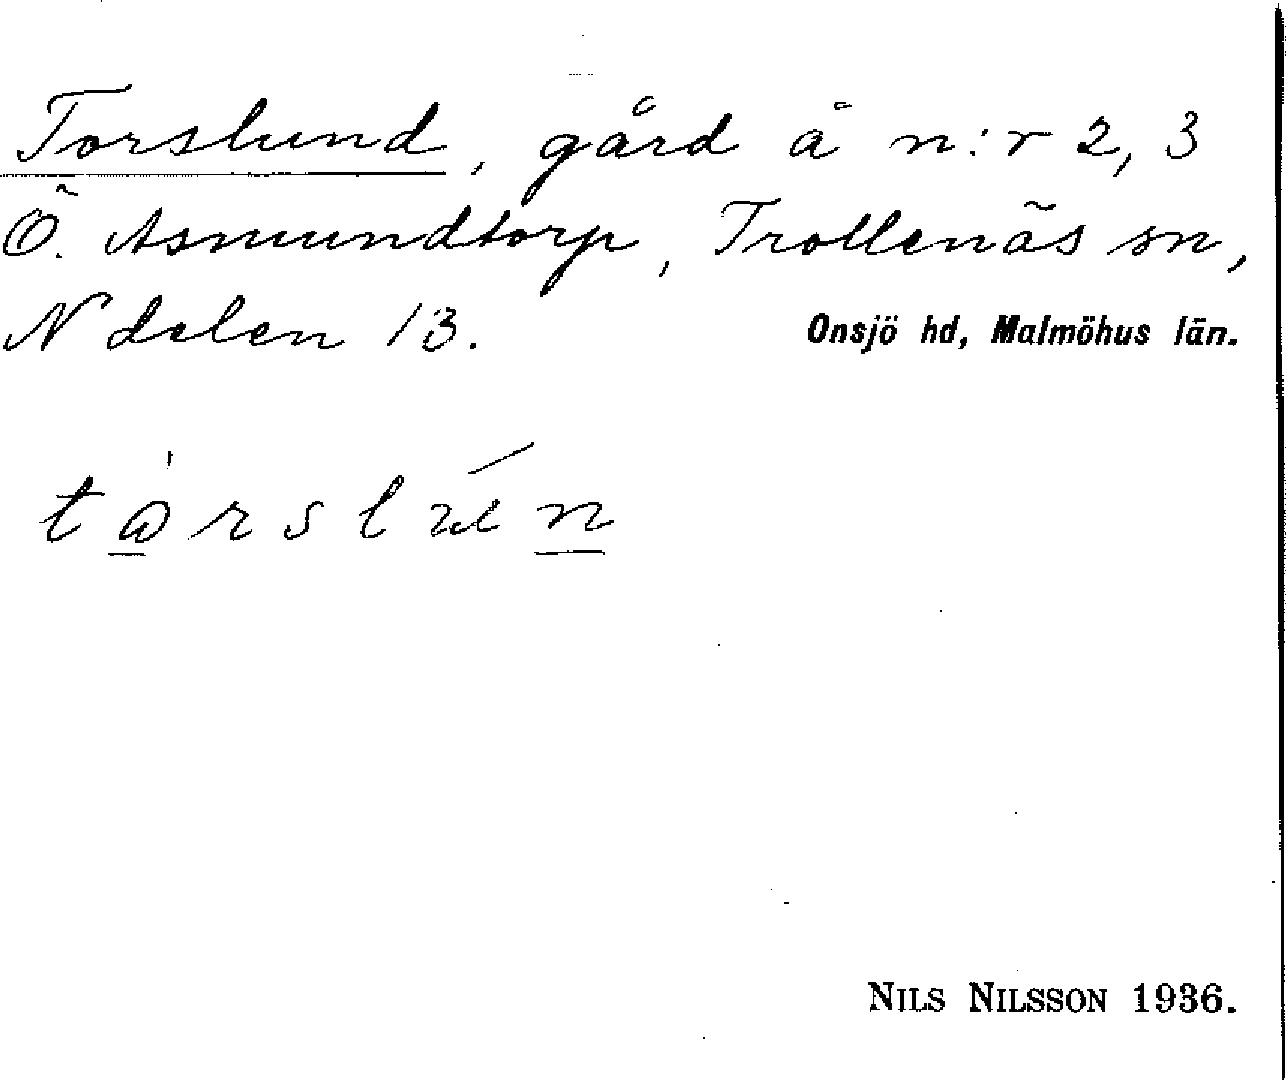 Torslund, gård å n:r 2, 3
Ö. Asmundtorp, Trollenäs sn,
N delen 13.
Onsjö hd, Malmöhus län.
NILS NILSSON 1936.